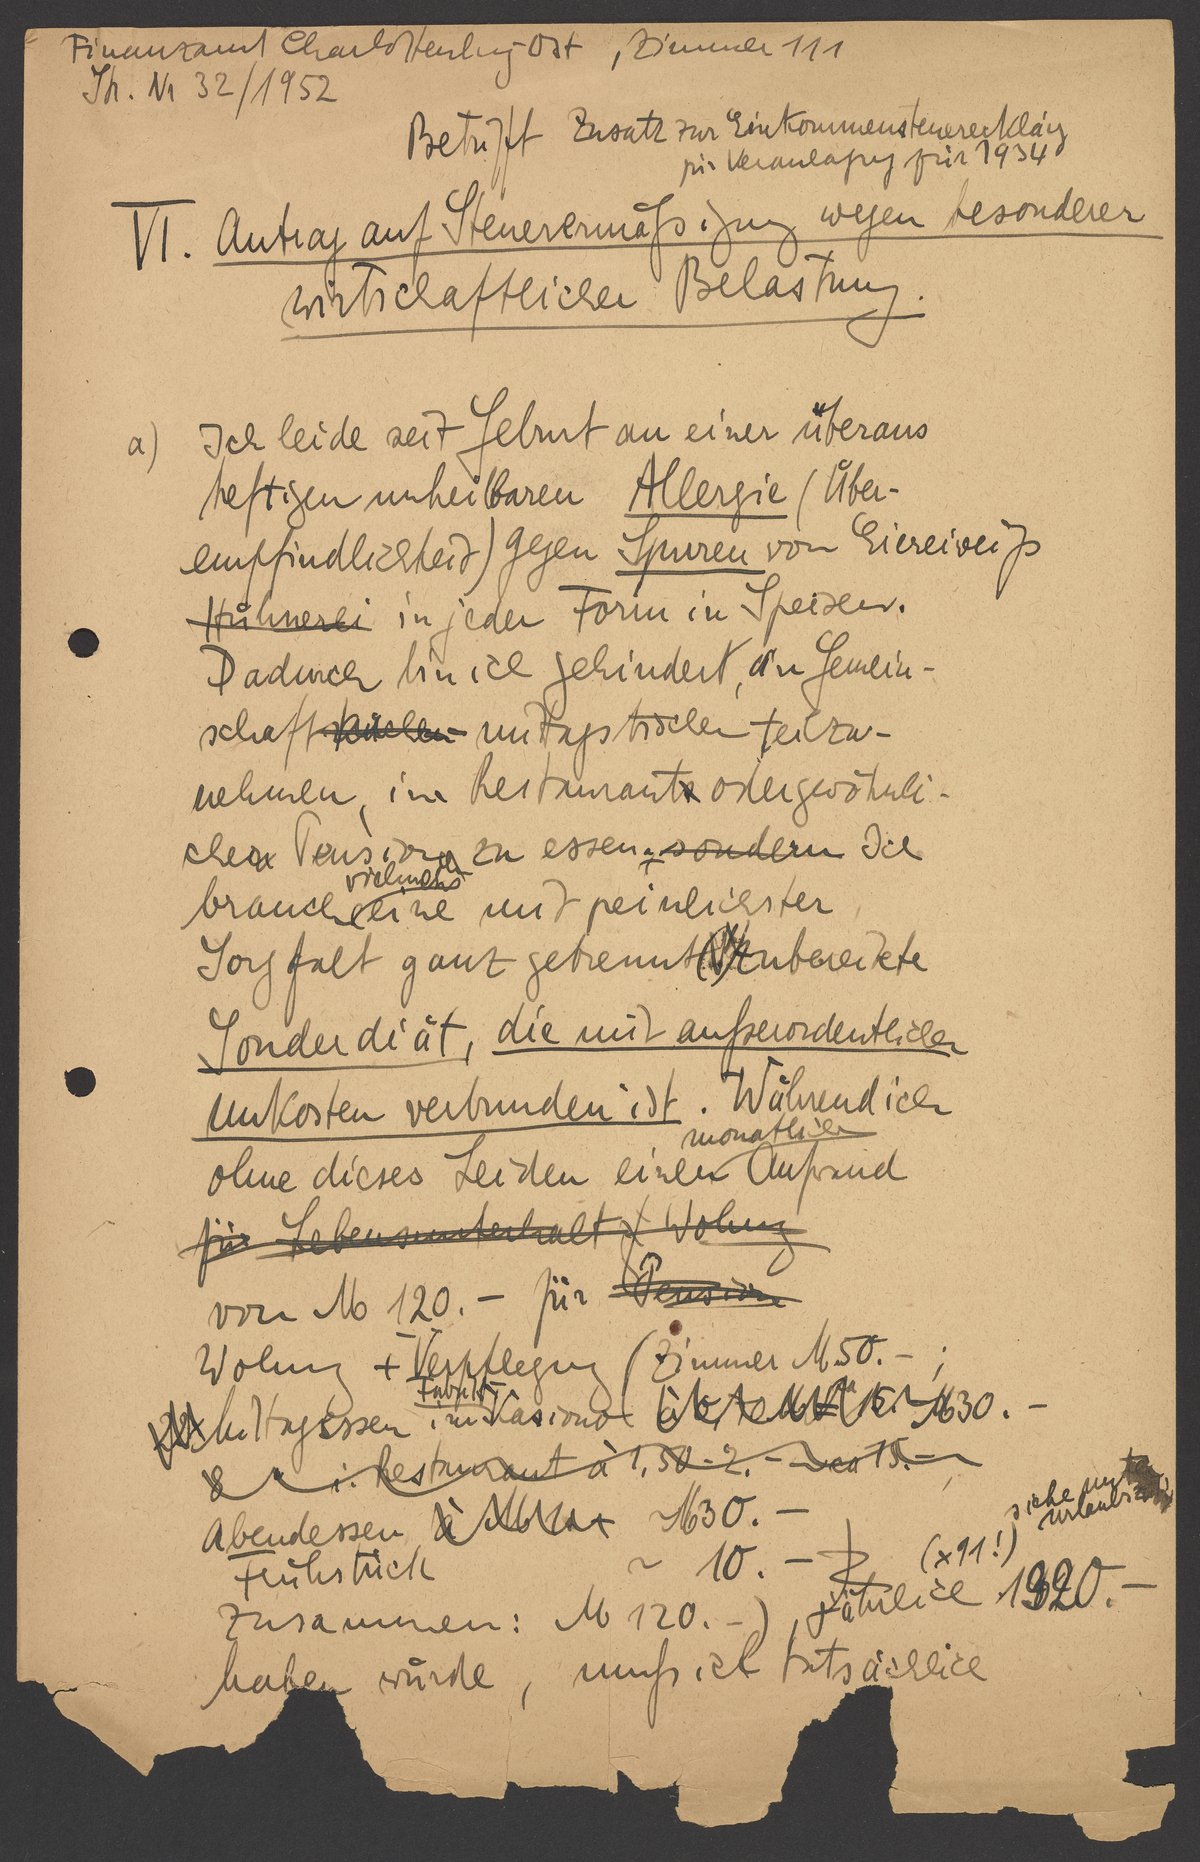 Finanzamt Charlottenburg-Ost, Zimmer 111
Nr 32/1952
Betrifft Zusatz zur Einkommensteuererklärg
für Veranlagung für 1934
VI. Antrag auf Steuerermäßigung wegen besonderer
wirtschaftlicher Belastung.
a) Ich leide seit Geburt an einer überaus
heftigen unheilbaren Allergie (Über-
empfindlichkeit) gegen Spuren von Eiereiweiß
Hühnerei in jeder Form in Speisen.
Dadurch bin ich gehindert, an Gemein-
schaftsküchen mittagstischen teilzu-
nehmen, im Restaurant oder gewöhnli-
chen Pension zu essen. sondern Ich
vielmehr
brauche eine mit peinlichster
Sorgfalt ganz getrennt zubereitete
Sonderdiät, die mit außerordentlichen
Unkosten verbunden ist. Während ich
monatlich
ohne dieses Leiden einen Aufwand
für Lebensunterhalt + Wohng
von M 120.- für Pension
Wohng + Verpflegung (Zimmer M 50.-;
Fabrik-
Mittagessen im Kasino M30.-
8 " i. Restaurant à 1,50-2.- ca 15.-
Abendessen à M30.-
siehe unten
Urlaubszeit
Frühstück ~ 10.- (x11!)
zusammen: M 120.-), jährlich 1320.-
haben würde, muß ich tatsächlich